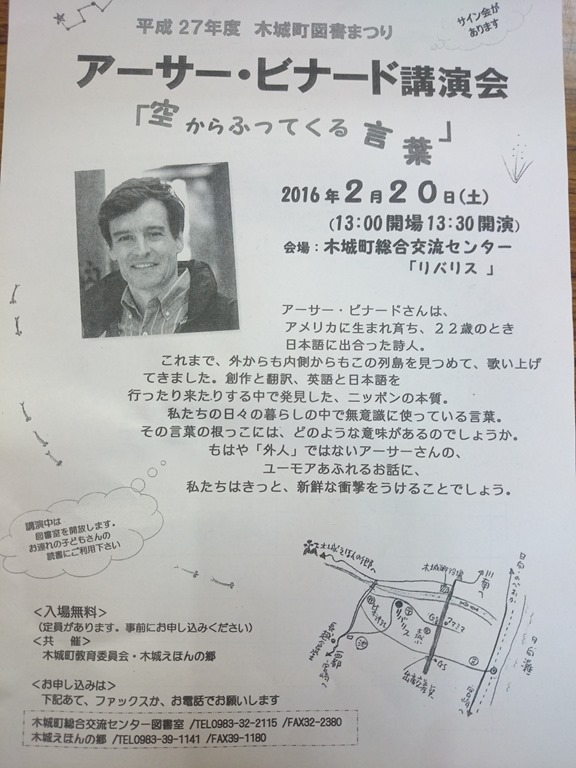 サイン会が
あります
平成27年度 木城町図書まつり
アーサー・ビナード講演会
「空からふってくる言葉」
2016年2月20日(土)
(13:00開場13:30開演)
会場:木城町総合交流センター
「リバリス」
アーサー・ビナードさんは、
アメリカに生まれ育ち、22歳のとき
日本語に出合った詩人。
これまで、外からも内側からもこの列島を見つめて、歌い上げ
てきました。創作と翻訳、英語と日本語を
行ったり来たりする中で発見した、ニッポンの本質。
私たちの日々の暮らしの中で無意識に使っている言葉。
その言葉の根っこには、どのような意味があるのでしょうか。
もはや「外人」ではないアーサーさんの、
ユーモアあふれるお話に、
私たちはきっと、新鮮な衝撃をうけることでしょう。
講演中は
図書室を開放します。
お連れの子どもさんの
読書にご利用下さい
木城えほんの郷へ
木城町役場
川南へ
日向灘
リバリス
GS
GS
<入場無料>
(定員があります。事前にお申し込みください)
<共 催>
木城町教育委員会・木城えほんの郷
<お申し込みは>
下記あて、ファックスか、お電話でお願いします
木城町総合交流センター図書室 /TEL0983-32-2115 /FAX32-2380
木城えほんの郷 /TEL0983-39-1141 /FAX39-1180